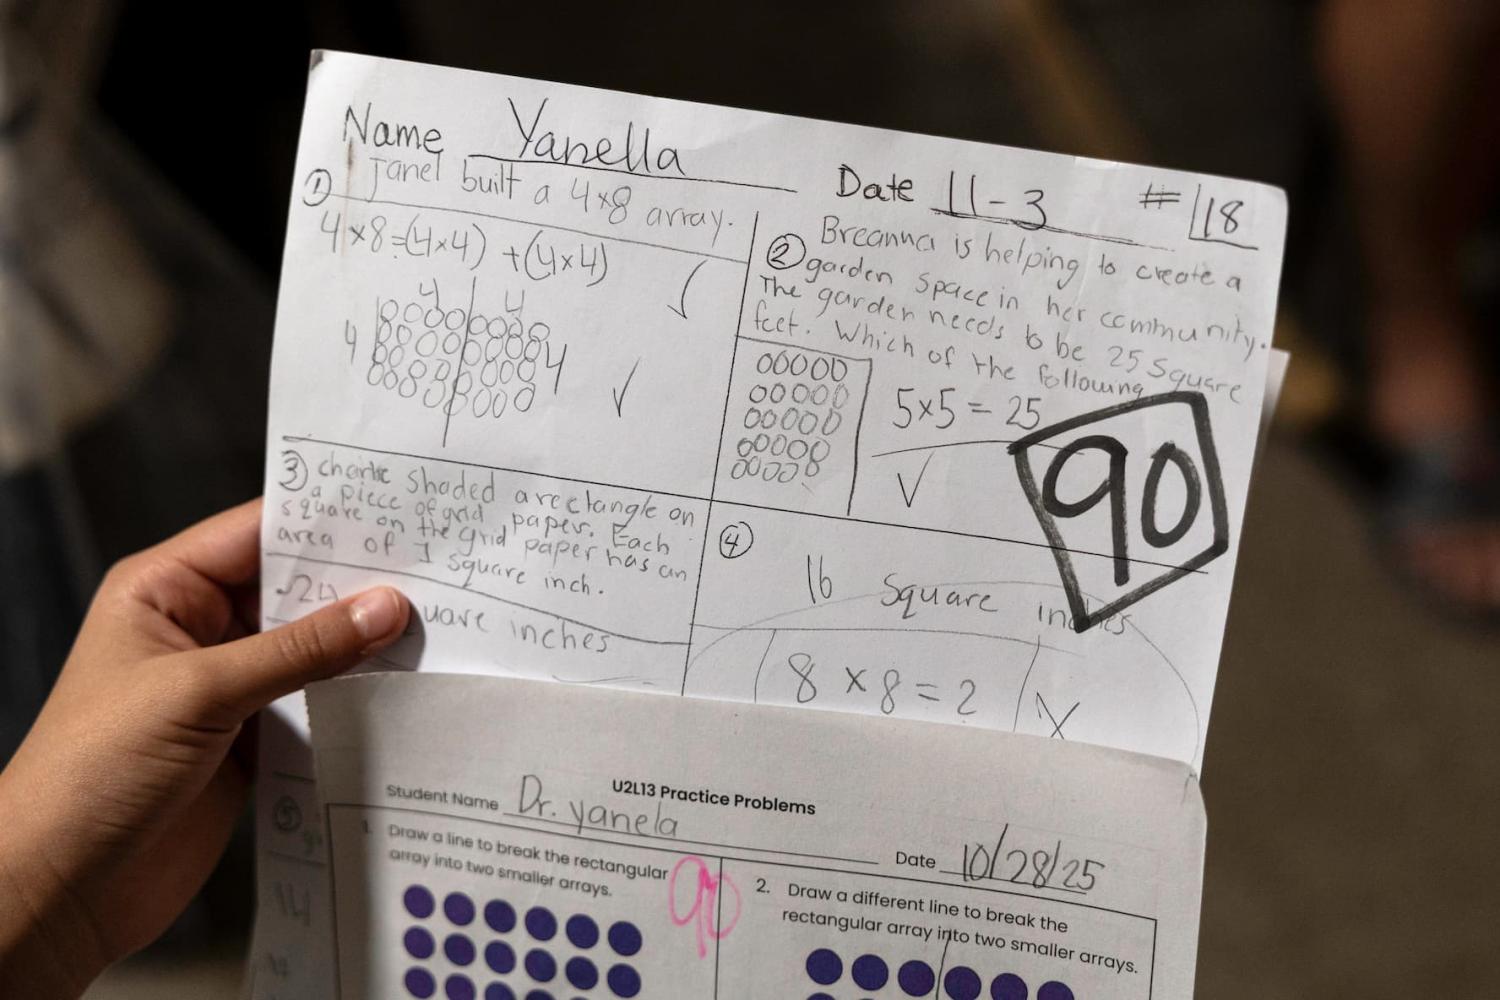 Name Yanella
Date 11-3 # 18
① Janel built a 4×8 array.
4×8=(4×4) +(4×4)
4 4
4 4
② Breanna is helping to create a
garden space in her community.
The garden needs to be 25 square
feet. Which of the following
5×5 = 25
90
③ shaded a rectangle on
a piece of grid paper. Each
square on the grid paper has an
area of 1 square inch.
24 uare inches
④
16 square inches
8 × 8 = ?
U2L13 Practice Problems
Student Name Dr. yanela
Date 10/28/25
1. Draw a line to break the rectangular
array into two smaller arrays.
90
2. Draw a different line to break the
rectangular array into two smaller arrays.